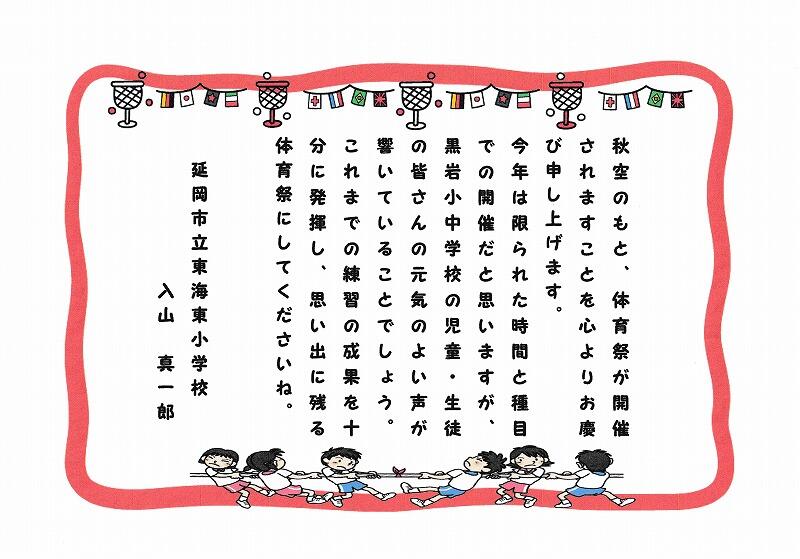 秋空のもと、体育祭が開催
されますことを心よりお慶
び申し上げます。
今年は限られた時間と種目
での開催だと思いますが、
黒岩小中学校の児童・生徒
の皆さんの元気のよい声が
響いていることでしょう。
これまでの練習の成果を十
分に発揮し、思い出に残る
体育祭にしてくださいね。
延岡市立東海東小学校
入山 真一郎